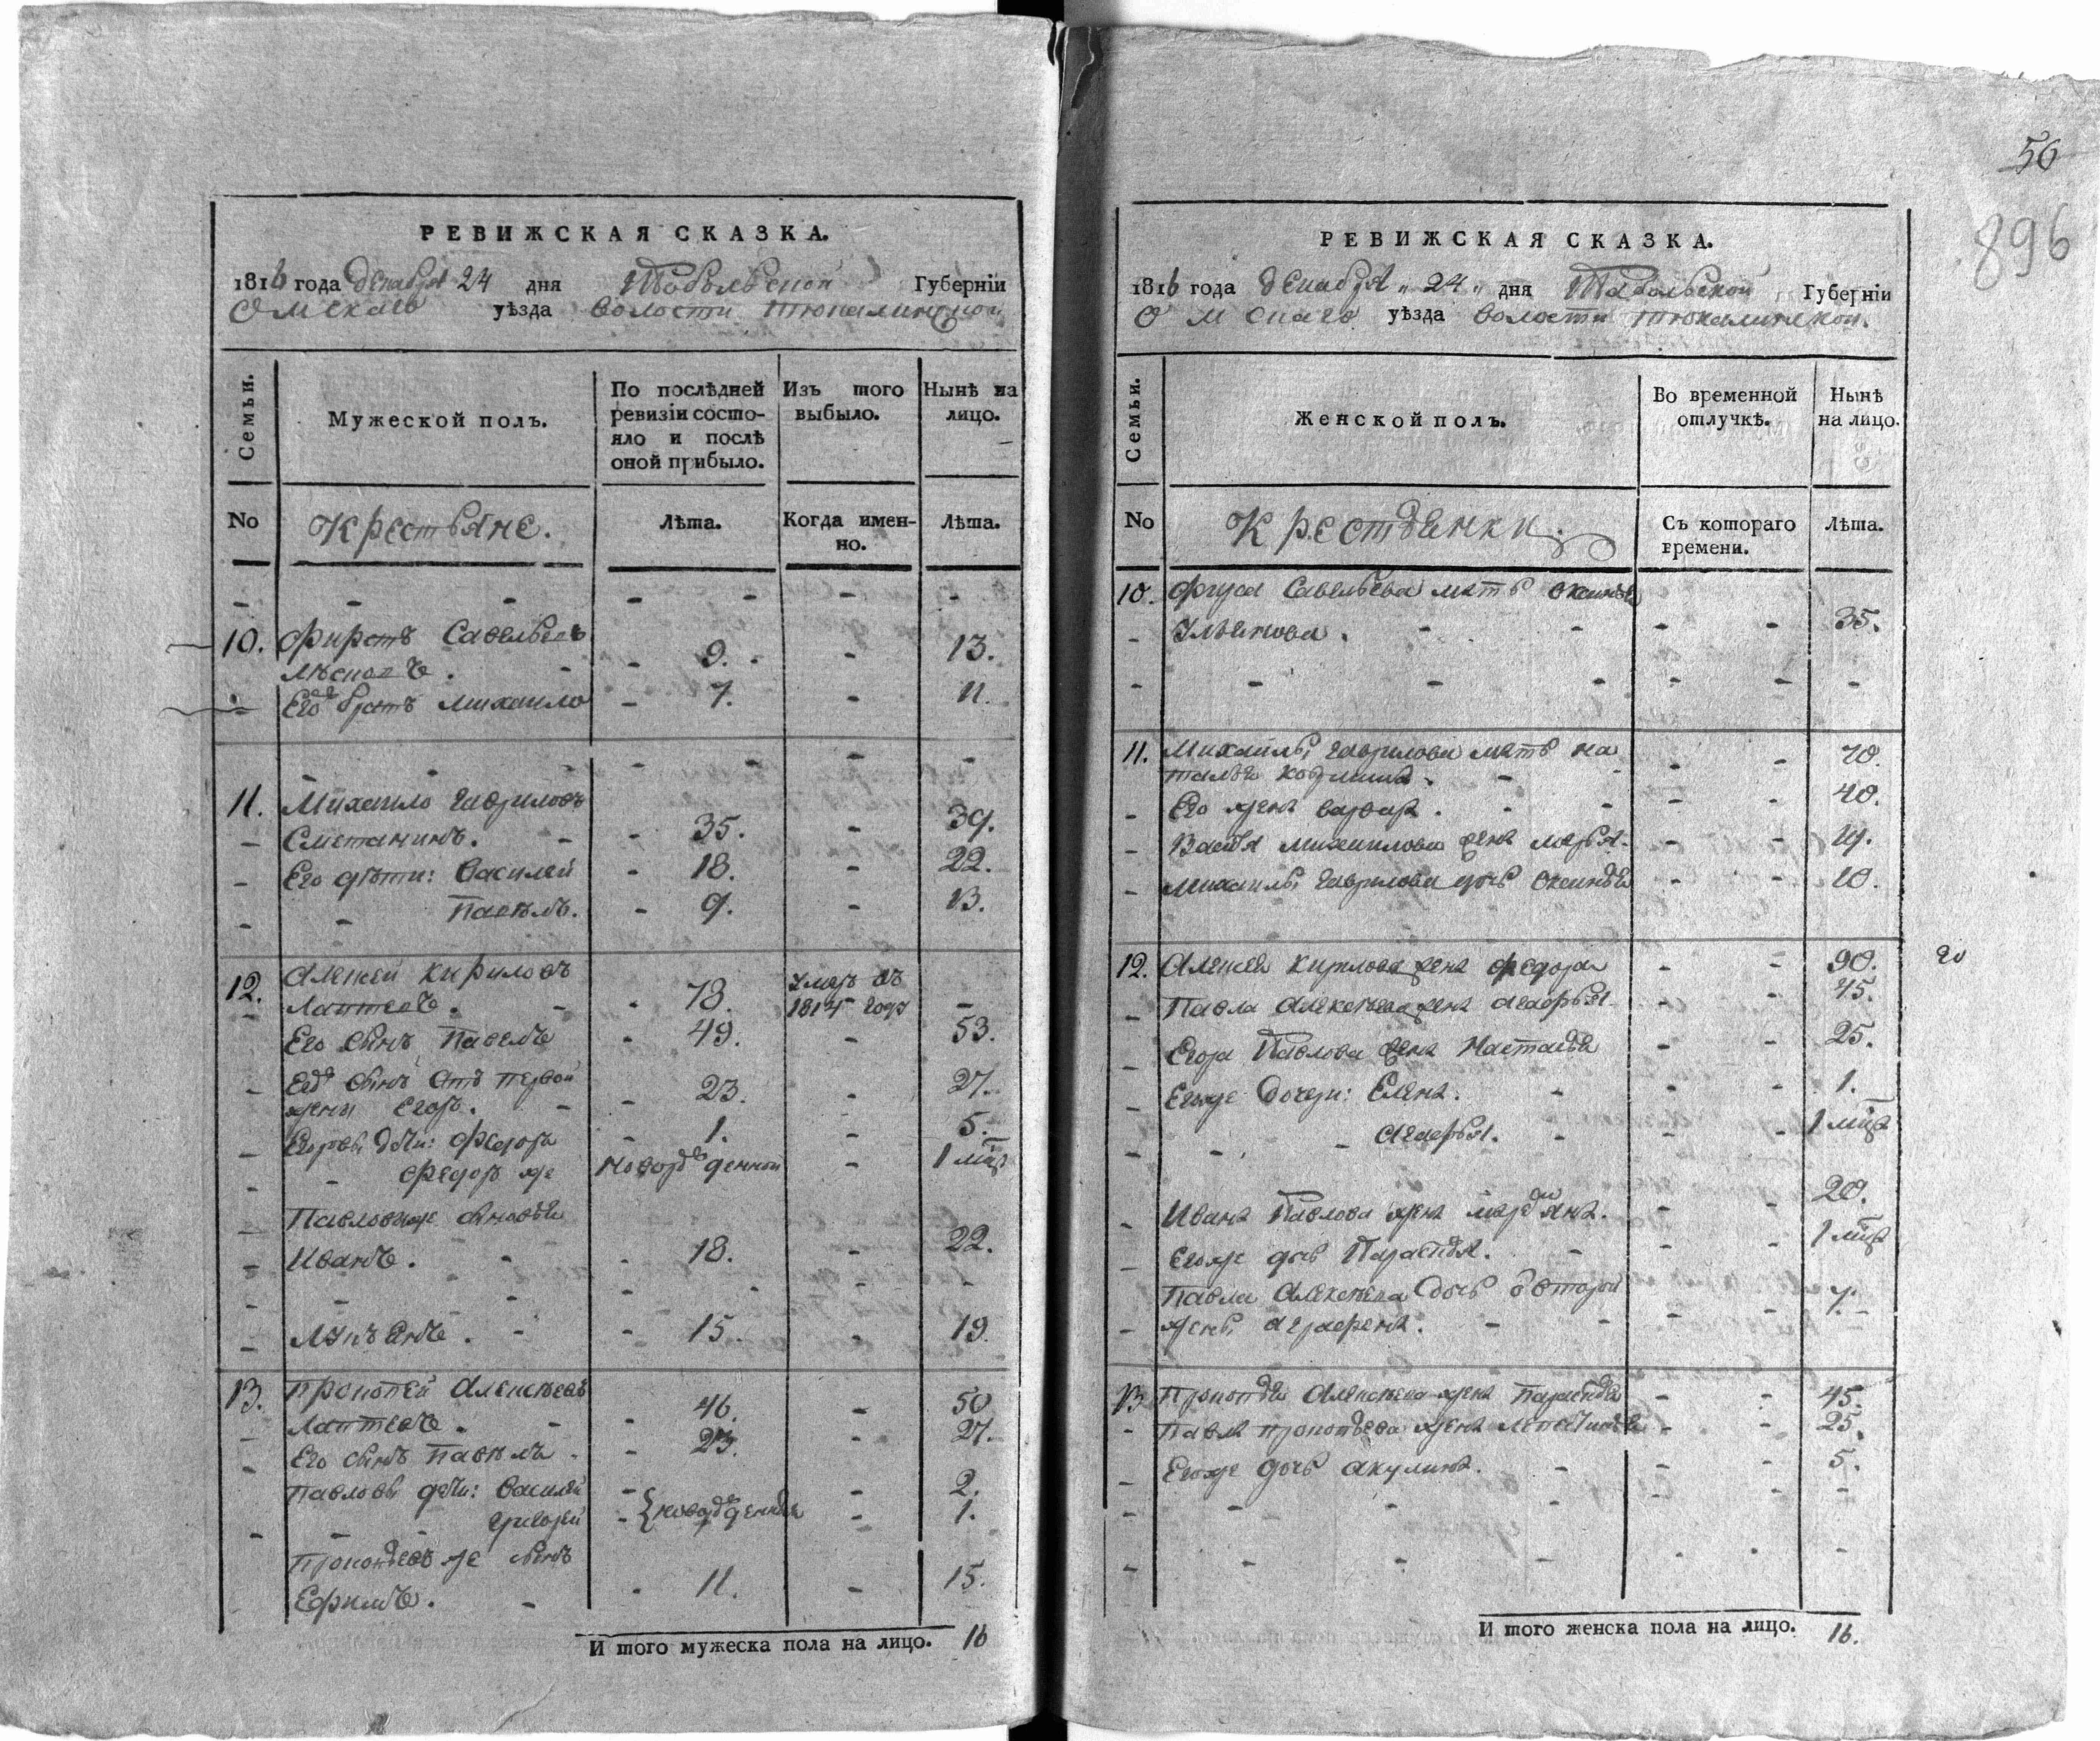 50
896
РЕВИЖСКАЯ СКАЗКА.
1816 года декабря 24 дня Тобольской Губерніи
Омскаго уѣзда волости Тюкалинской
Семьи.
Мужеской полъ.
По послѣдней ревизіи состояло и послѣ оной прибыло.
Изъ того выбыло.
Нынѣ на лицо.
No
Крестьяне.
Лѣта.
Когда именно.
Лѣта.
10. Фирстъ Савельевъ
9. 13.
Его братъ Михаило 7. 11.
11. Михаило Гавриловъ
Сметанинъ. 35. 39.
Его дѣти: Василей 18. 22.
Павелъ. 9. 13.
12. Алексей Кириловъ
Лаптевъ. 73. Умеръ въ 1814 году
Его сынъ Павелъ 49. 53.
Его сынъ отъ первой
жены Егоръ. 23. 27.
Егоровы дѣти: Федоръ 1. 5.
Федоръ же новорожденной 1 мца
Павловы же сыновья
Иванъ. 18. 22.
Лукъянъ. 15. 19.
13. Прокопей Алексеевъ
Лаптевъ. 46. 50
Его сынъ Павелъ 23. 27.
Павловы дѣти: Василей 2.
Григорей новорожденныя 1.
Прокопьевъ же сынъ
Ефимъ. 11. 15.
И того мужеска пола на лицо. 16
РЕВИЖСКАЯ СКАЗКА.
1816 года декабря „24„ дня Тобольской Губерніи
Омскаго уѣзда волости Тюкалинской.
Семьи.
Женской полъ.
Во временной отлучкѣ.
Нынѣ на лицо.
No
Крестьянки.
Съ котораго времени.
Лѣта.
10. Фирса Савельева мать Оксинья
Ульянова. 35.
11. Михаилы Гаврилова мать На
талья 70.
Его жена Варвара. 40.
Василья Михаилова жена Марья. 19.
Михаилы Гаврилова дочь Оксинья 10.
12. Алексея Кирилова жена Федора 90.
Павла Алексеева жена Агафья. 45.
Егора Павлова жена Настасья 25.
Егоже дочери: Елена. 1.
Агафья. 1 мца
Ивана Павлова жена Марьяна. 20.
Егоже дочь Парасковья. 1 мца
Павла Алексеева дочь от второй
жены Аграфена. 7.
13. Прокопья Алексеева жена Парасковья 45.
Павла Прокопьева жена 25.
Егоже дочь Акулина. 5.
И того женска пола на лицо. 16.